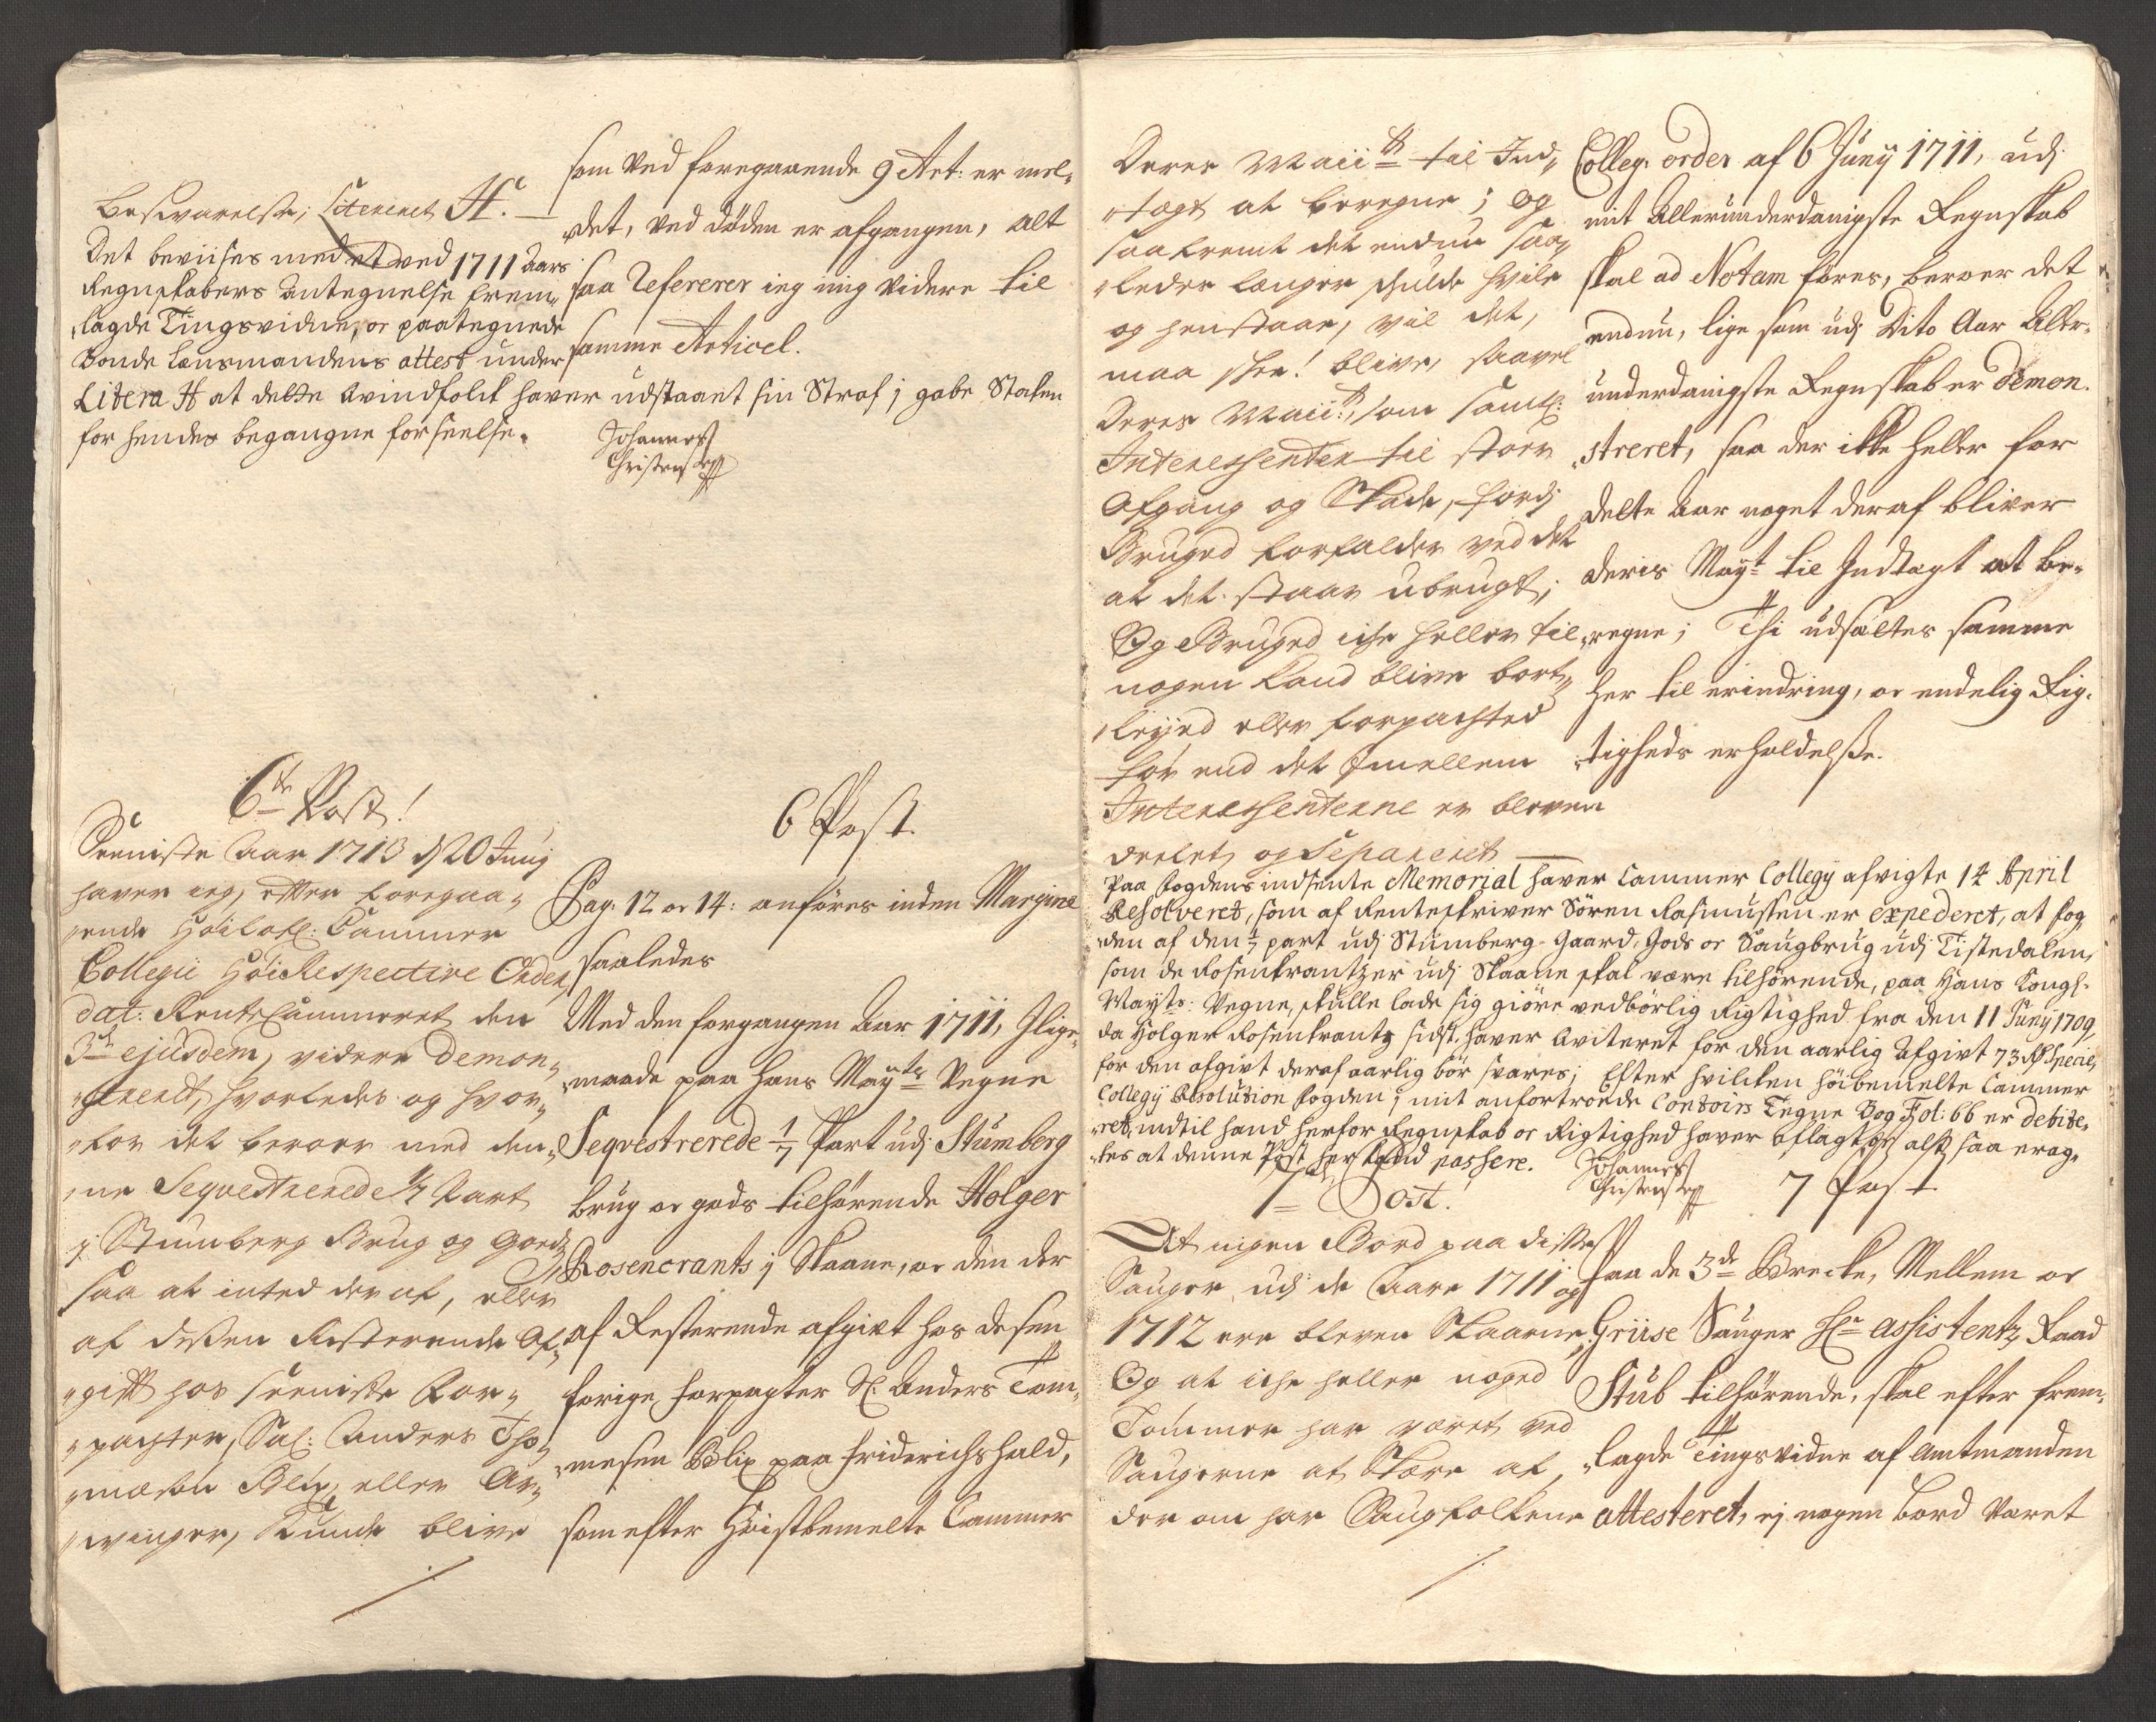 Besvarelse; Litereret H.
Det beviises med et ved 1711 Aars
Regnskabers Antegnelse frem„
„lagde Tingsvidne, og paategnede
Bonde Lensmandens attest under
Litera H at dette Qvindfolck haver udstaaet sin Straf i gabe Stocken
for hendes begangne forseelse.
Johannes
Christensen
som ved foregaaende 9 Art: er mel„
„det, ved døden er afgangen, alt
saa Refererer ieg mig videre til
samme Articel.
6te Post!
Seeniste Aar 1713 d 20 Junij
haver ieg, efter foregaa„
„ende Høilofl: Cammer
Collegii Høi Respective Order,
dat: RenteCammeret den
3de ejusdem, videre demon„
„streret, hvorledes og hvor„
„for det beroer med den„
„ne Seqvestrerede 1/7 Part
i Stumberg Brug og Gods
saa at inted deraf, eller
af dessen Resterende Af„
„gift hos seeniste For„
„pachter, Sal: Anders Tho„
„mæsøn Blix, eller Ar„
„vinger, kunde blive
6 Post.
Pag: 12 og 14: anføres inden Margine
saaledes
Med den forgangen Aar 1711, Ilige„
„maade paa Hans Mayts Vegne
Seqvestrerede 1/7 Part udj Stumberg
brug og gods tilhørende Holger
Rosencrants i Skaane, og den der
af Resterende afgivt hos desen
forige forpagter Sl. Anders Tom„
„mesen Blix paa Friderichshald,
som efter Høistbemelte Cammer
Deres Maiits til Ind„
„tægt at beregne; og
saafremt det endnu saa„
„leder længer skulde hvile
og henstaae, vil det,
maa skee! blive, saavel
Deres Maiits, som samtl:
Interessenter til stoer
Afgang og Skade, fordj
Bruged forfalder ved det
at det staar ubrugt;
Og Bruged iche heller til
nogen kand blive bort„
„leijed eller forpachted
før end det Imellem
Interessenterne er bleven
deelet og Separeret
Colleg: order af 6 Junij 1711, udj
mit Allerunderdanigste Regnskab
skal ad Notam føres, beroer det
endnu, lige som udj Dito Aar Aller„
underdanigste Regnskab er demon„
„streret, saa der ikke heller for
dette Aar noget deraf bliver
Deris Mayt til Indtægt at be„
„regne; Thi udsættes samme
her til erindring, og endelig Rig„
„tigheds erholdelsse.
Paa fogdens indsente Memorial haver Cammer Collegij afvigte 14 April
Resolveret, som af Renteskriver Søren Rasmussen er expederet, at fog„
„den af den 1/7 part udj Stumberg-Gaard, Gods og Saugbrug udj Tistedalen,
som de Rosenkrantzer udj Skaane skal være tilhørende, paa Hans Kongl.
Mayts: Vegne, skulle lade sig giøre vedbørlig Rigtighed fra den 11 Junij 1709,
da Holger Rosenkrantz sidst haver Qviteret for den aarlig Afgivt 73 Rd Specie,
for den afgivt deraf aarlig bør svares; Efter hvilcken høibemelte Cammer
Collegij Resolution fogden i mit anfortroede Contoirs Tegne Bog Fol: 66 er debite„
„ret, indtil hand herfor Regnskab og Rigtighed haver aflagt, og alt saa erag„
„tes at denne Post her kand passere. Johannes
Christensen
7de Post!
At ingen Bord paa disse
Sauger udj de Aare 1711 og
1712 ere bleven Skaarne,
Og at iche heller noged
Tømmer har været ved
Saugerne at Skære af,
der om har Saugfolkene
7 Post
Paa de 3de Brecke, Mellem og
Griise Sauger Hr assistentz Raad
Stub tilhørende, skal efter frem„
„lagde Tingsvidne af Amtmanden
attesteret, ej nogen bord været